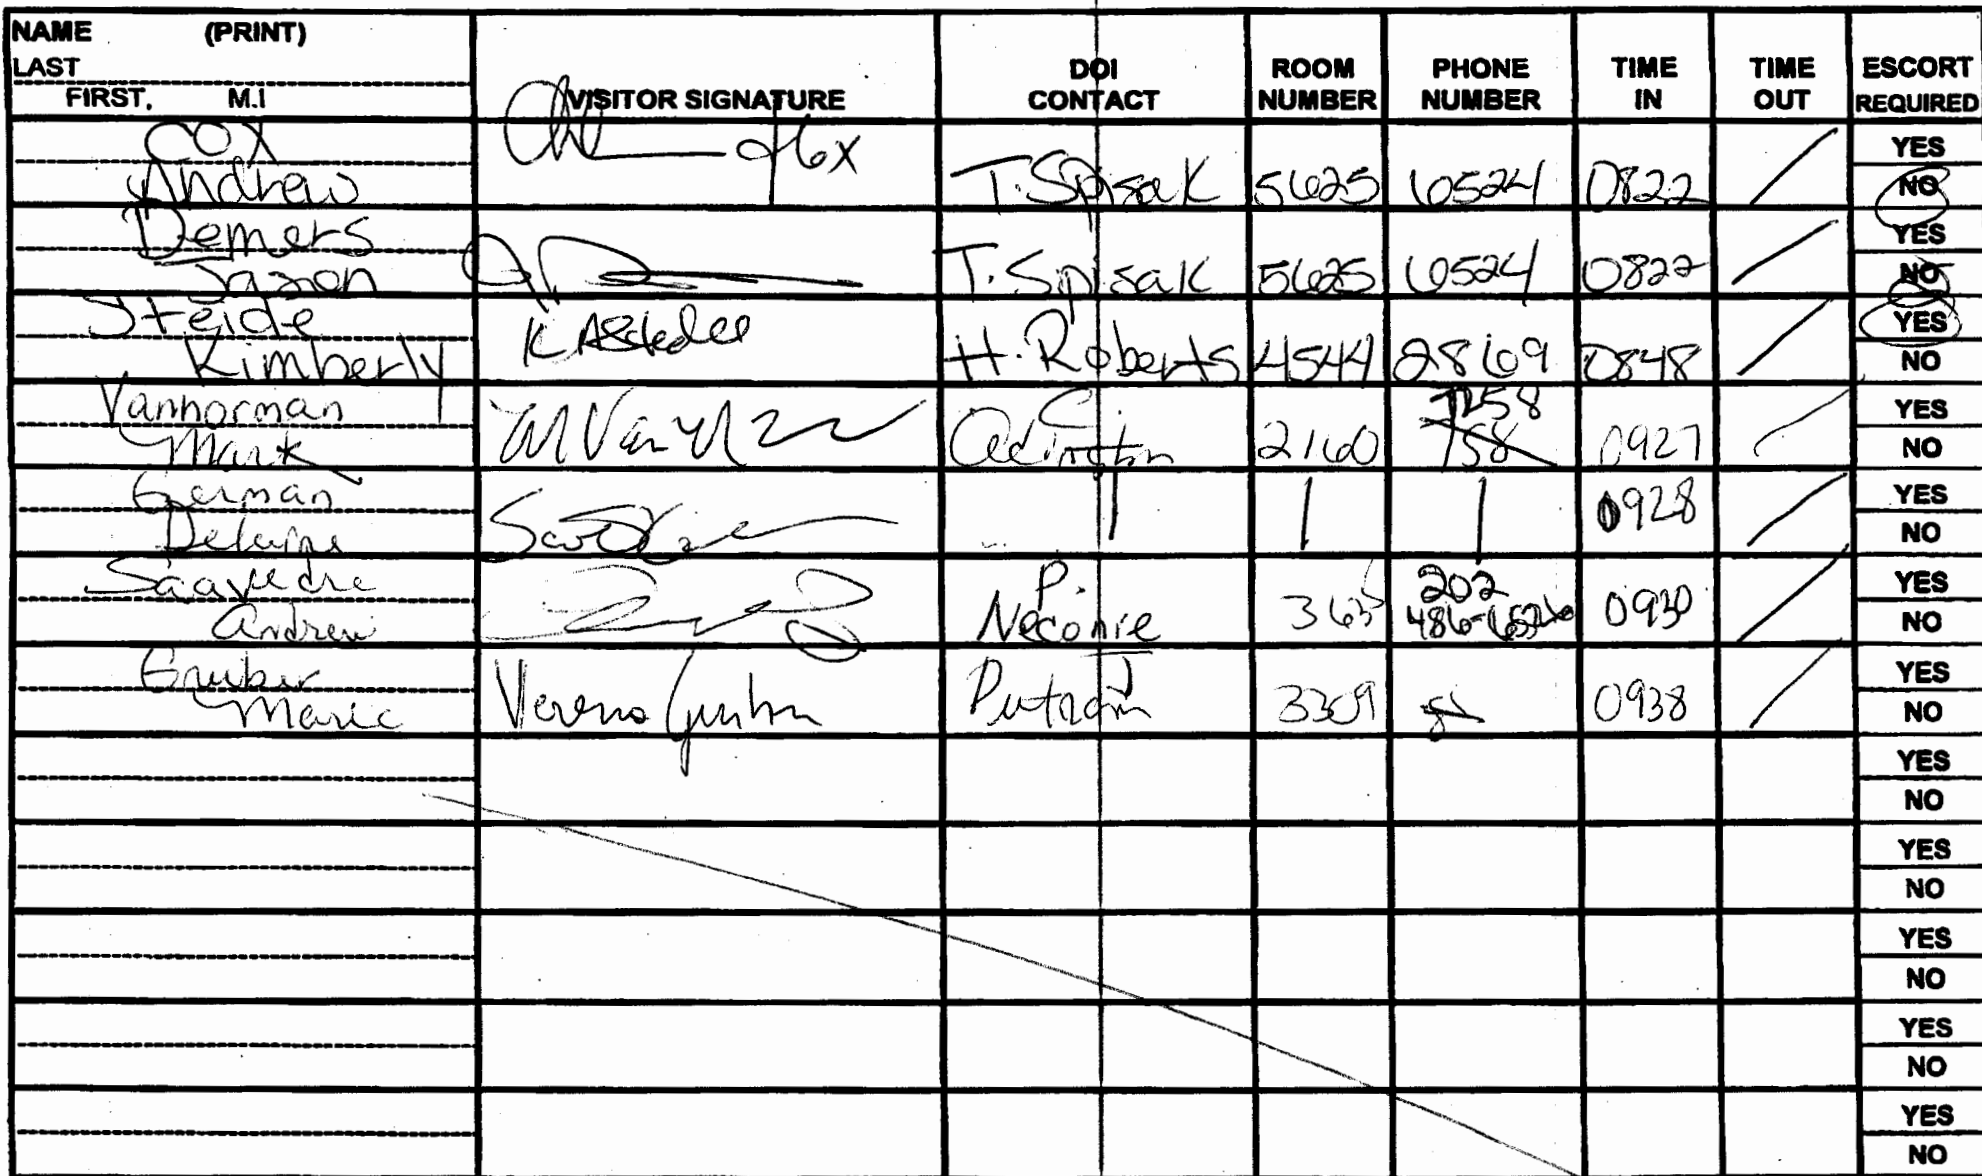 NAME (PRINT)
LAST
FIRST, M.I
VISITOR SIGNATURE
DOI
CONTACT
ROOM
NUMBER
PHONE
NUMBER
TIME
IN
TIME
OUT
ESCORT
REQUIRED
Cox
Andrew
T. Spisak 5625 6524 0822
YES
NO
Demers
Jason
T. Spisak 5625 6524 0822
YES
NO
Steide
Kimberly
H. Roberts 4544 2869 0848
YES
NO
Vanhorman
Mark
C. 7258
2160 0927
YES
NO
German
0928
YES
NO
Saavedra
Andrew
P. 202
Neconie 0930
YES
NO
Gruber
Marie
Verena Gruber
Putnam 3309 0938
YES
NO
YES
NO
YES
NO
YES
NO
YES
NO
YES
NO